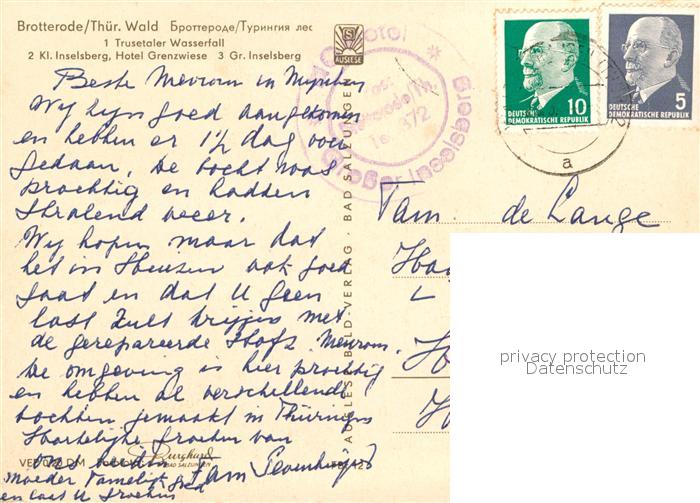 Brotterode/Thür. Wald Броттероде/Турингия лес
1 Trusetaler Wasserfall
2 Kl. Inselsberg, Hotel Grenzwiese 3 Gr. Inselsberg
AUSLESE
Beste Mevrouw en Mijnheer
Wij zijn goed aangekomen
en hebben er 1½ dag over
gedaan, De tocht was
prachtig en hadden
stralend weer.
Wij hopen maar dat
het in Huizen ook goed
gaat en dat U geen
last zult krijgen met
de gerepareerde Mevrouw.
De omgeving is hier prachtig
en hebben al verschillende
tochten gemaakt in Thüringen
Hartelijke groeten van
ons beiden
Fam
Moeder
en laat U
BAD SALZUNGEN
AUSLESE-BILD-VERLAG · BAD SALZUNGEN
Hotel
Großer Inselsberg
Tel. 372
10
DEUTSCHE
DEMOKRATISCHE REPUBLIK
5
DEUTSCHE
DEMOKRATISCHE REPUBLIK
a
Fam. de Lange
privacy protection
Datenschutz